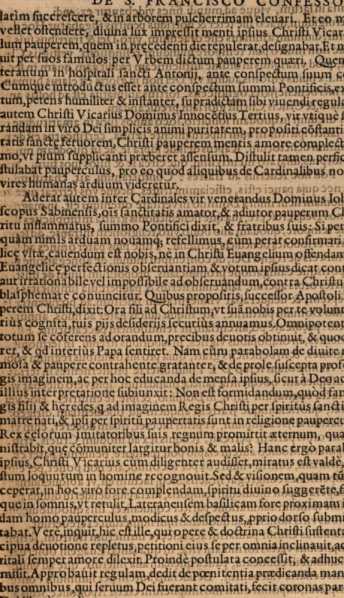 DE S. FRANCISCO CONFESSO
latim succrescere, & in arborem pulcherrimam eleuari. Et eo m
vellet ostendere, diuina lux impressit menti ipsius Christi Vicar
lum pauperem, quem in precedenti die repulerat, designabat. Et m
uit per suos famulos per Vrbem dictum pauperem quæri. Quem
teranum in hospitali sancti Antonij, ante conspectum suum c
Cumque introductus esset ante conspectum summi Pontificis, ex
tum, petens humiliter & instanter, supradictam sibi viuendi regula
autem Christi Vicarius Dominus Innocētius Tertius, vir vtique
randam in viro Dei simplicis animi puritatem, propositi cōstanti
tatis sanctę feruorem, Christi pauperem mentis amore complecti
mo, vt pium supplicanti præberet assensum. Distulit tamen perfic
stulabat pauperculus, pro eo quod aliquibus de Cardinalibus no
vires humanas arduum videretur.
Aderat autem inter Cardinales vir venerandus Dominus Ioā
scopus Sabinensis, ois sanctitatis amator, & adiutor pauperum C
ritu inflammatus, summo Pontifici dixit, & fratribus suis: Si per
quam nimis arduam nouamq; refellimus, cùm petat confirmari
licę vitæ, cauendum est nobis, ne in Christi Euangelium offendam
Euangelicę perfectionis obseruantiam & votum ipsius dicat cont
aut irrationabile vel impossibile ad obseruandum, contra Christi
blasphemare conuincitur. Quibus propositis, successor Apostoli
perem Christi, dixit: Ora fili ad Christum, vt suā nobis per te volun
tius cognita, tuis pijs desiderijs securius annuamus. Omnipotent
totum se cōferens ad orandum, precibus deuotis obtinuit, & quo
ret, & qd interius Papa sentiret. Nam cùm parabolam de diuite
mosa & paupere contrahente gratanter, & de prole suscepta prof
gis imaginem, ac per hoc educanda de mensa ipsius, sicut à Deo ac
illius interpretatione subiunxit: Non est formidandum, quod fam
gis filij & heredes, q ad imaginem Regis Christi per spiritus sancti
matre nati, & ipsi per spiritū paupertatis sunt in religione pauperc
Rex cęlorum imitatoribus suis regnum promittit æternum, qua
nistrabit, quę cōmuniter largitur bonis & malis? Hanc ergo parab
ipsius, Christi Vicarius cùm diligenter audisset, miratus est valdè,
stum loquutum in homine recognouit. Sed & visionem, quam tūc
ceperat, in hoc viro fore complendam, spiritu diuino suggerēte,
que in somnis, vt retulit, Lateranensem basilicam fore proximam
dam homo pauperculus, modicus & despectus, pprio dorso submi
tabat. Verè, inquit, hic est ille, qui opere & doctrina Christi sustent
cipua deuotione repletus, petitioni eius se per omnia inclinauit, ac
ritali semper amore dilexit. Proinde postulata concessit, & adhuc
misit. Approbauit regulam, dedit de pœnitentia prædicanda man
bus omnibus, qui seruum Dei fuerant comitati, fecit coronas par